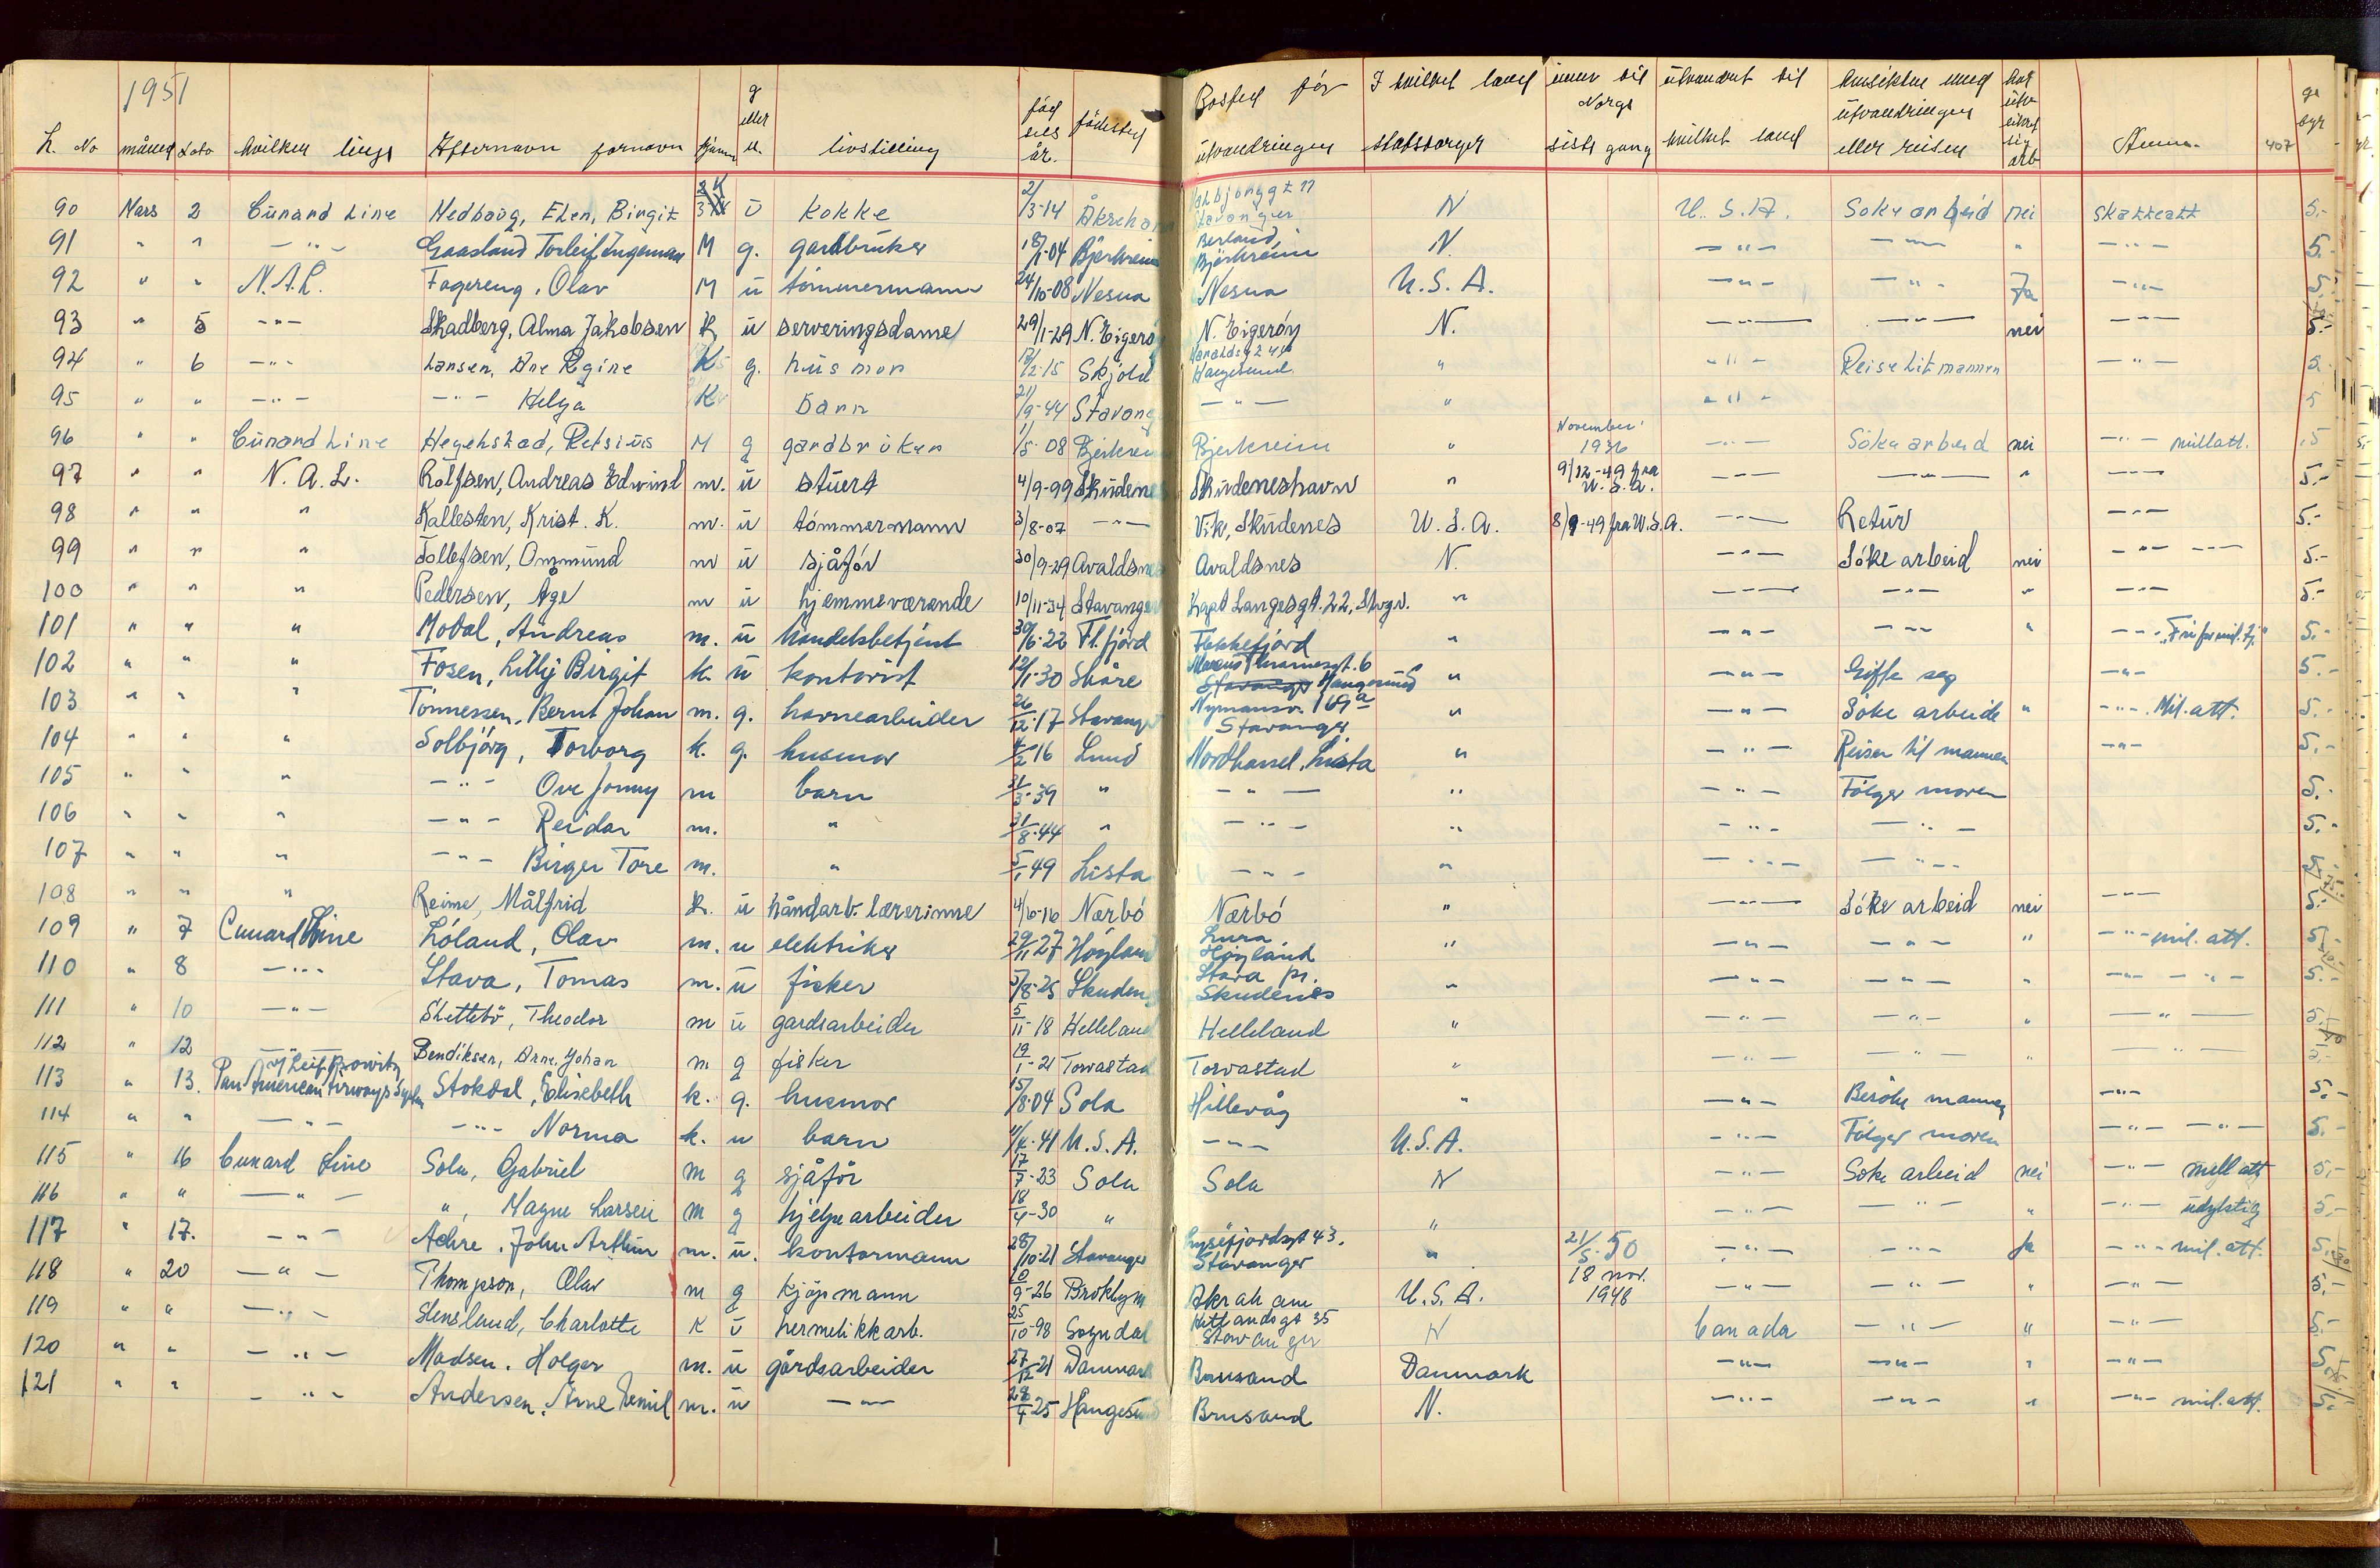 1951
L. No måned Dato hvilken linje Efternavn fornavn kjønn g eller u. livstilling fødselsår. fødested Bosted før utvandringen I hvilket land statsborger innv til Norge siste gang utvandret til hvilket land Hensikten med utvandringen eller reisen Anm. 407 gebyr
90 Mars 2 Cunard Line Nedbøvg, Elen, Birgit K u kokke 2/3-14 Åkreham Stavanger N U.S.A. Søke arbeid nei skatteatt 5.-
91 " " -"- Gaasland Torleif Ingeman M g. gardbruker 18/1-04 Bjerkreim Berland, Bjerkreim N. -"- -"- " -"- 5.-
92 " " N.A.L. Fagereng, Olav M u tømmermann 24/10-08 Nesna Nesna U.S.A. -"- -"- Ja -"- 5.-
93 " 5 -"- Skadberg, Alma Jakobsen K u serveringsdame 29/1-29 N. Eigerøy N. Eigerøy N. -"- -"- nei -"- 5.-
94 " 6 -"- Larsen, Ane Regine K g. husmor 12/2-15 Skjold Haraldsg 240 Haugesund " -"- Reise til mannen -"- 5.-
95 " " -"- -"- Helga K barn 21/9-44 Stavang -"- " -"- 5
96 " " Cunard Line Hegehstad, Retsius M g gardbruker 1/5-08 Bjerkreim Bjerkreim " November 1936 -"- Søke arbeid nei -"- millatt. 5
97 " " N.A.L. Rolfsen, Andreas Edwind m. u stuert 4/9-99 Skudenes Skudeneshavn " 9/12-49 fra U.S.A. -"- -"- " -"- 5.-
98 " " " Kallesten, Krist. K. m. u tømmermann 3/8-07 -"- Vik, Skudenes U.S.A. 8/9-49 fra U.S.A. -"- Retur -"- 5.-
99 " " " Tollefsen, Ommund m u sjåfør 30/9-29 Avaldsnes Avaldsnes N. -"- Søke arbeid nei -"- -"- 5.-
100 " " " Pedersen, Åge m u hjemmeværende 10/11-34 Stavanger Kapt Langesgt. 22, Stvgr. " -"- -"- " -"- 5.-
101 " " " Modal, Andreas m. u handelsbetjent 30/6-22 Fl.fjord Flekkefjord " -"- -"- " -"- "Fri for mil.tj." 5.-
102 " " " Fosen, Lilly Birgit k. u kontorist 12/1-30 Skåre Marcus Thranesgt. 6 Stavanger Haugesund " -"- Gifte seg -"- 5.-
103 " " " Tønnessen, Bernt Johan m. g. havnearbeider 26/12-17 Stavanger Nymansv. 169a Stavanger " -"- Søke arbeide " -"- Mil. att. 5.-
104 " " " Solbjørg, Torborg k. g. husmor 4/2-16 Lund Nordhassel, Lista " -"- Reiser til mannen -"- 5.-
105 " " " -"- Ove Jonny m barn 31/3-39 " -"- " -"- Følger moren 5.-
106 " " " -"- Reidar m. " 31/8-44 " -"- " -"- -"- 5.-
107 " " " -"- Birger Tore m. " 5/1-49 Lista -"- " -"- -"- 5.-
108 " " " Reime, Målfrid K. u håndarb. lærerinne 4/6-16 Nærbø Nærbø " -"- Søke arbeid nei -"- 5.-
109 " 7 Cunard Line Løland, Olav m. u elektriker 29/11-27 Høyland Lura Høyland " -"- -"- " -"- mil. att. 5.-
110 " 8 -"- Stava, Tomas m. u fisker 5/8-25 Skuden Stava pr. Skudenes " -"- -"- " -"- -"- 5.-
111 " 10 -"- Skettebø, Theodor m u gardsarbeider 5/11-18 Helleland Helleland " -"- -"- " -"- 5.-
112 " 12 -"- Bendiksen, Arne Johan m g fisker 19/1-21 Torvastad Torvastad " -"- -"- " -"- 5.-
113 " 13. Pan American Airways System Stokdal, Elisebeth k. g. husmor 15/8-04 Sola Hillevåg " -"- Besøke mannen -"- 5.-
114 " " -"- -"- Norma k. u barn 11/4-41 U.S.A. -"- U.S.A. -"- Følger moren -"- -"- 5.-
115 " 16 Cunard Line Sola, Gabriel m g sjåfør 17/7-23 Sola Sola N -"- Søke arbeid nei -"- mill att 5.-
116 " " -"- ", Magne Larsen m g hjelpearbeider 18/4-30 " " -"- -"- " -"- udyktig 5.-
117 " 17. -"- Achre, John Arthur m. u. kontormann 28/10-21 Stavanger Lysefjordsgt 43. Stavanger " 21/5-50 -"- -"- Ja -"- mil. att. 5.-
118 " 20 -"- Thompson, Olav m g kjøpmann 10/9-26 Broklyn Akraham U.S.A. 18 nov. 1948 -"- -"- " -"- 5.-
119 " " -"- Slensland, Charlotte K u hermetikkarb. 25/10-98 Sogndal Hetlandsgt 35 Stavanger N Canada -"- " -"- 5.-
120 " " -"- Madsen, Holger m. u gårdsarbeider 27/12-21 Danmark Brusand Danmark -"- -"- " -"- 5.-
121 " " -"- Andersen, Arne Emil m. u -"- 28/4-25 Haugesund Brusand N. -"- -"- " -"- mil. att. 5.-